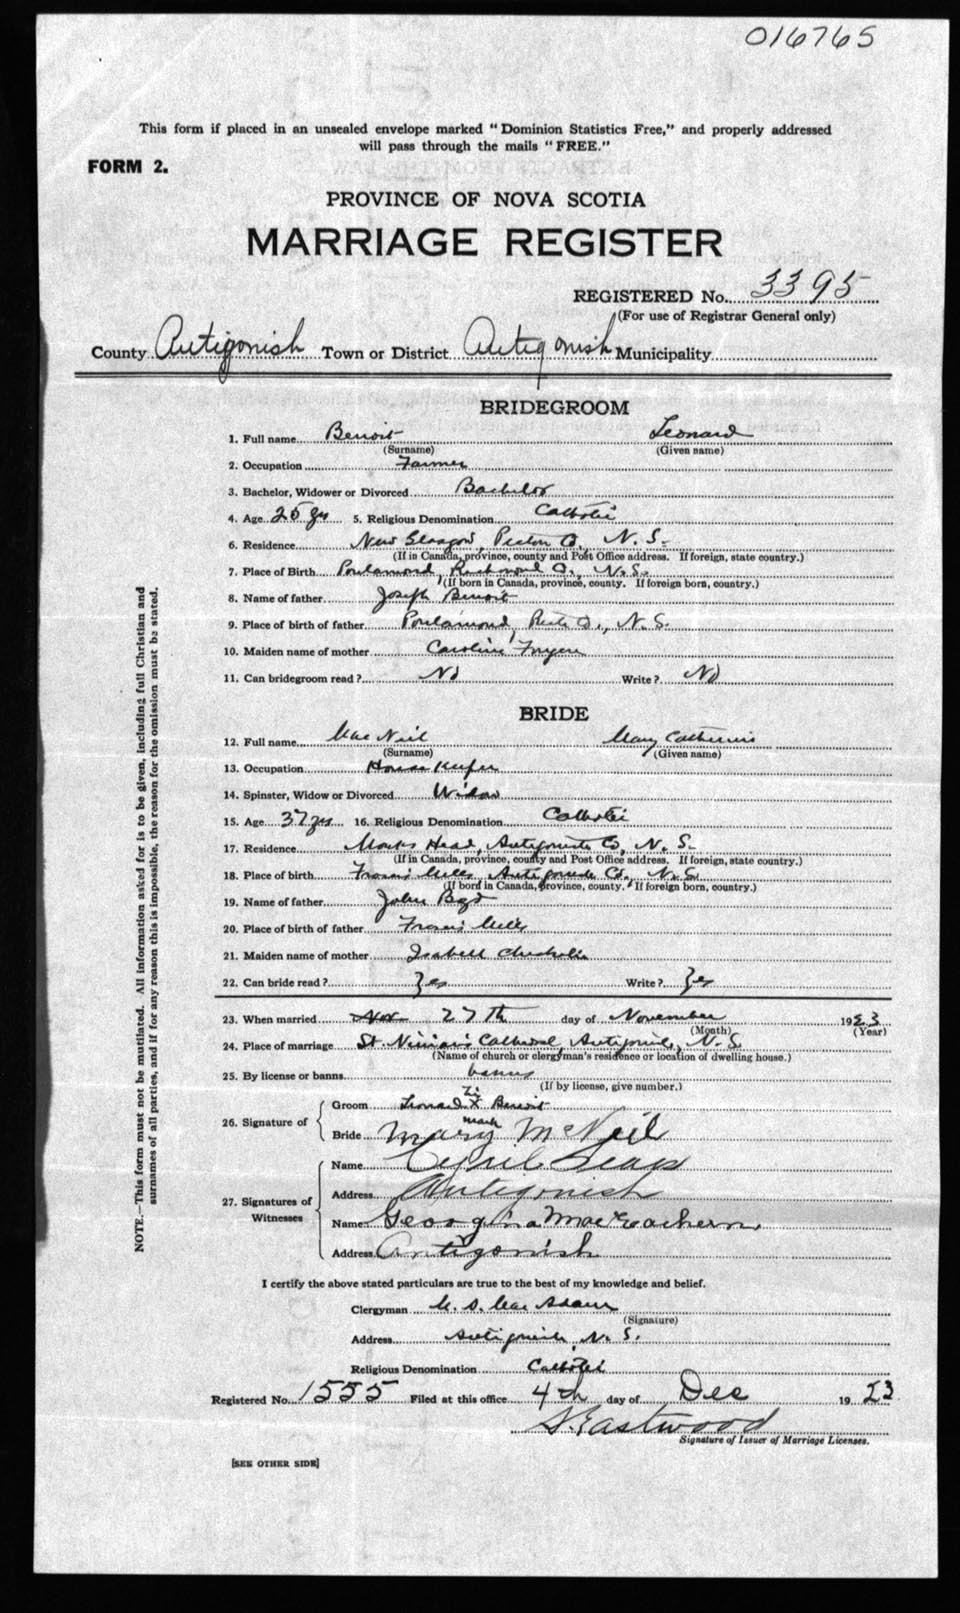 016765
This form if placed in an unsealed envelope marked "Dominion Statistics Free," and properly addressed
will pass through the mails "FREE."
FORM 2.
PROVINCE OF NOVA SCOTIA
MARRIAGE REGISTER
REGISTERED No. 3395
(For use of Registrar General only)
County Antigonish Town or District Antigonish Municipality
BRIDEGROOM
1. Full name Benoit Leonard
(Surname) (Given name)
2. Occupation Farmer
3. Bachelor, Widower or Divorced Bachelor
4. Age 25 yrs 5. Religious Denomination Catholic
6. Residence New Glasgow, Pictou Co, N. S.
(If in Canada, province, county and Post Office address. If foreign, state country.)
7. Place of Birth Poulamond, Richmond Co., N.S.
(If born in Canada, province, county. If foreign born, country.)
8. Name of father Joseph Benoit
9. Place of birth of father Poulamond, Rich Co., N. S.
10. Maiden name of mother Caroline
11. Can bridegroom read? No Write? No
BRIDE
12. Full name Mac Neil Mary Catherine
(Surname) (Given name)
13. Occupation House Keeper
14. Spinster, Widow or Divorced Widow
15. Age 37 yrs 16. Religious Denomination Catholic
17. Residence Monks Head, Antigonish Co, N. S.
(If in Canada, province, county and Post Office address. If foreign, state country.)
18. Place of birth Frasers Mills, Antigonish Co. N.S.
(If born in Canada, province, county. If foreign born, country.)
19. Name of father John Boyd
20. Place of birth of father Frasers Mills
21. Maiden name of mother Isabell Chisholm
22. Can bride read? Yes Write? Yes
23. When married Nov 27th day of November 1923
(Month) (Year)
24. Place of marriage St. Ninian's Cathedral, Antigonish, N.S.
(Name of church or clergyman's residence or location of dwelling house.)
25. By license or banns banns
(If by license, give number.)
26. Signature of
Groom Leonard X Benoit
mark
Bride Mary McNeil
27. Signatures of Witnesses
Name Cyril
Address Antigonish
Name Georgina MacEachern
Address Antigonish
I certify the above stated particulars are true to the best of my knowledge and belief.
Clergyman M. A. Mac Adam
(Signature)
Address Antigonish, N. S.
Religious Denomination Catholic
Registered No. 1555 Filed at this office 4th day of Dec 1923
Eastwood
Signature of Issuer of Marriage Licenses.
[SEE OTHER SIDE]
NOTE.—This form must not be mutilated. All information asked for is to be given, including full Christian and
surnames of all parties, and if for any reason this is impossible, the reason for the omission must be stated.